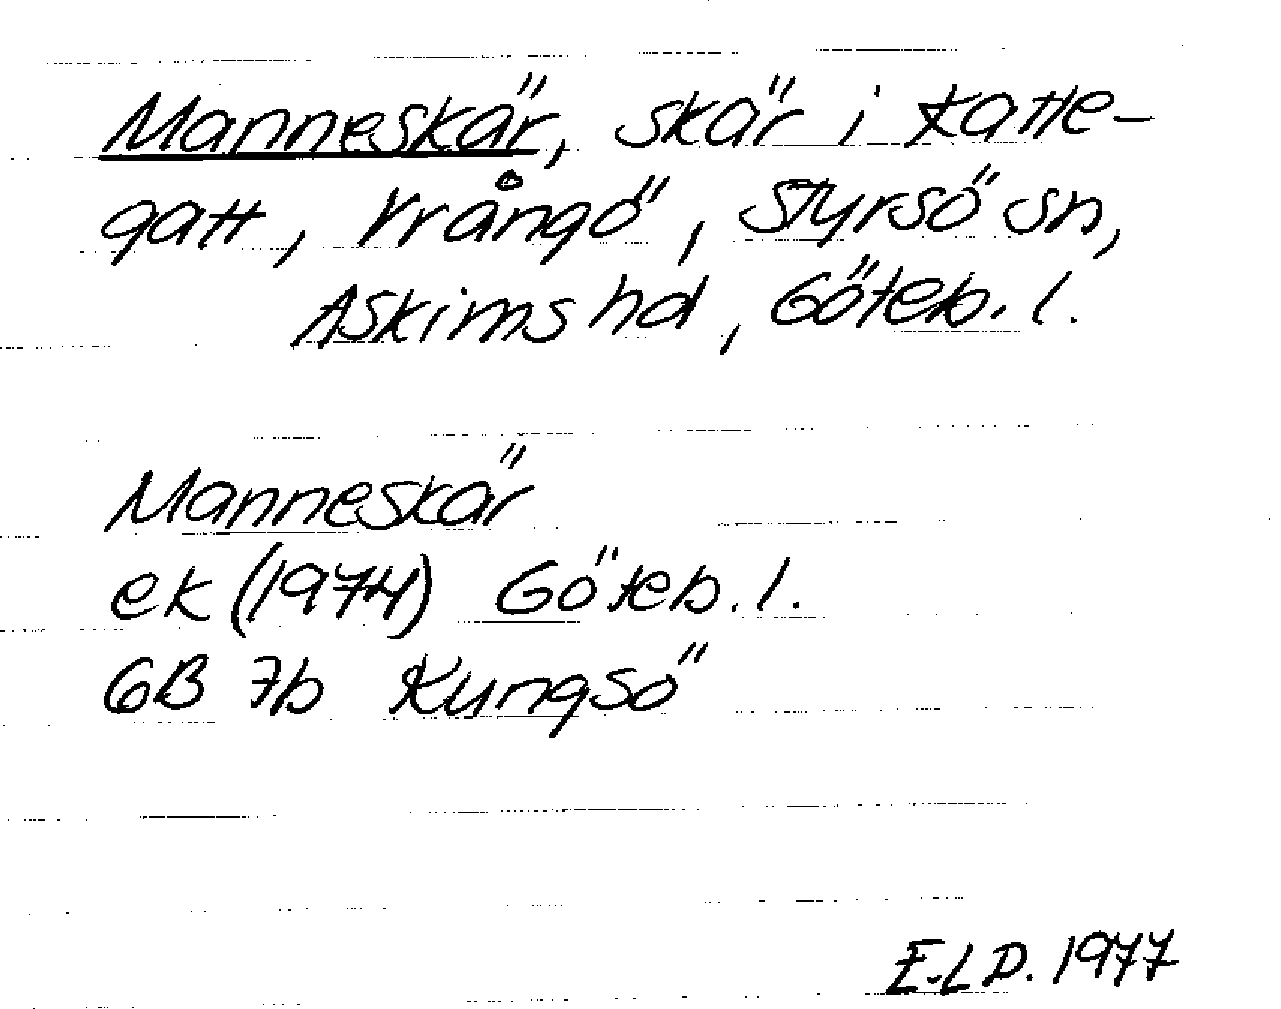 Manneskär, skär i Katte-
gatt, Vrångö, Styrsö sn,
Askims hd, Göteb. l.
Manneskär
ek (1974) Göteb. l.
6B 7b Kungsö
E.LD. 1977